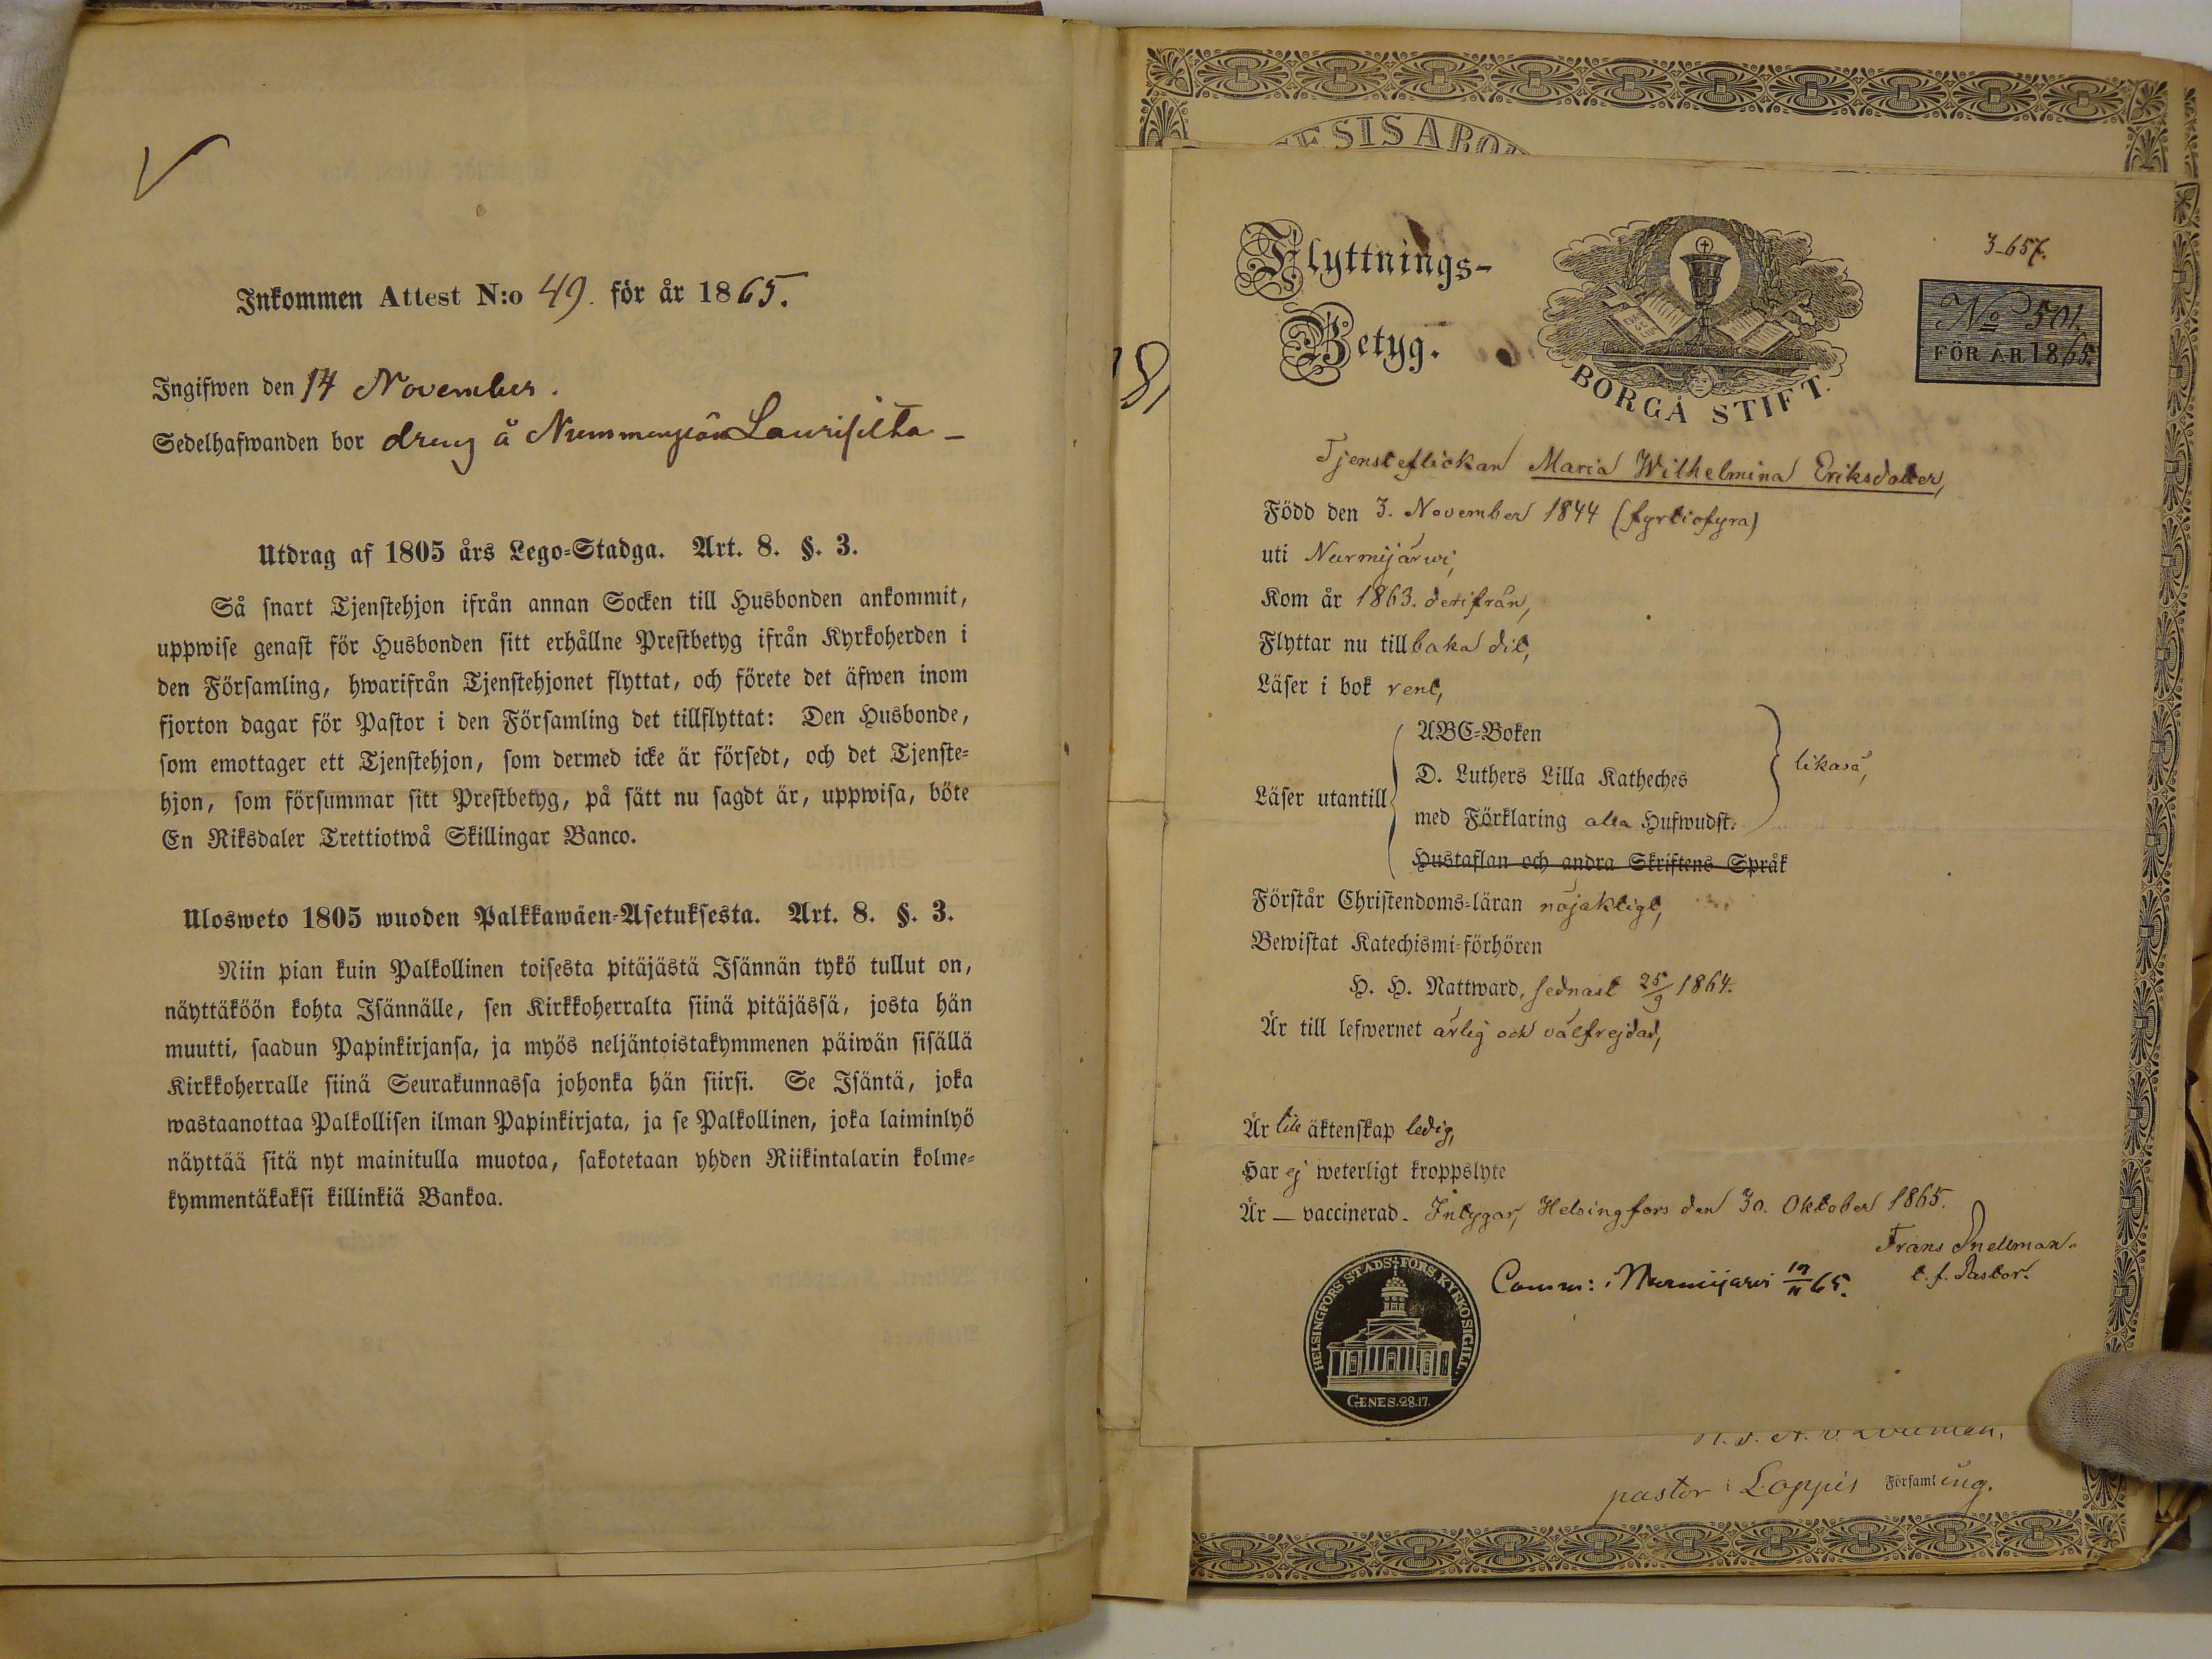 Inkommen Attest N:o 49. för år 1865.
Ingifwen den 14 November.
Sedelhafwanden bor dreng å Laurisilta –
Utdrag af 1805 års Lego=Stadga. Art. 8. §. 3.
Så snart Tjenstehjon ifrån annan Socken till Husbonden ankommit,
uppwise genast för Husbonden sitt erhållne Prestbetyg ifrån Kyrkoherden i
den Församling, hwarifrån Tjenstehjonet flyttat, och förete det äfwen inom
fjorton dagar för Pastor i den Församling det tillflyttat: Den Husbonde,
som emottager ett Tjenstehjon, som dermed icke är försedt, och det Tjenste=
hjon, som försummar sitt Prestbetyg, på sätt nu sagdt är, uppwisa, böte
En Riksdaler Trettiotwå Skillingar Banco.
Ulosweto 1805 wuoden Palkkawäen=Asetuksesta. Art. 8. §. 3.
Niin pian kuin Palkollinen toisesta pitäjästä Isännän tykö tullut on,
näyttäköön kohta Isännälle, sen Kirkkoherralta siinä pitäjässä, josta hän
muutti, saadun Papinkirjansa, ja myös neljäntoistakymmenen päiwän sisällä
Kirkkoherralle siinä Seurakunnassa johonka hän siirsi. Se Isäntä, joka
wastaanottaa Palkollisen ilman Papinkirjata, ja se Palkollinen, joka laiminlyö
näyttää sitä nyt mainitulla muotoa, sakotetaan yhden Riikintalarin kolme=
kymmentäkaksi killinkiä Bankoa.
SIS ABO
Flyttnings-
Betyg.
BORGÅ STIFT.
3-657.
No 501.
FÖR ÅR 1865.
Tjensteflickan Maria Wilhelmina Eriksdotter,
Född den 3. November 1844 (fyrtiofyra)
uti Nurmijärwi,
Kom år 1863. derifrån,
Flyttar nu tillbaka dit,
Läser i bok rent,
Läser utantill
ABC=Boken
D. Luthers Lilla Katheches
med Förklaring alla Hufwudst.
Hustaflan och andra Skriftens Språk
likaså,
Förstår Christendoms=läran nöjaktigt,
Bewistat Katechismi=förhören
H. H. Nattward, sednast 25/9 1864.
Är till lefwernet ärlig och välfrejdad,
Är till äktenskap ledig,
Har ej weterligt kroppslyte
Är — vaccinerad. Intygar, Helsingfors den 30. Oktober 1865.
Frans Snellman.
t. f. Pastor.
Comm: i Nurmijärvi 65.
HELSINGFORS STADS FÖRS. KYRKOSIGILL.
GENES.28.17.
pastor i Loppis Församling.